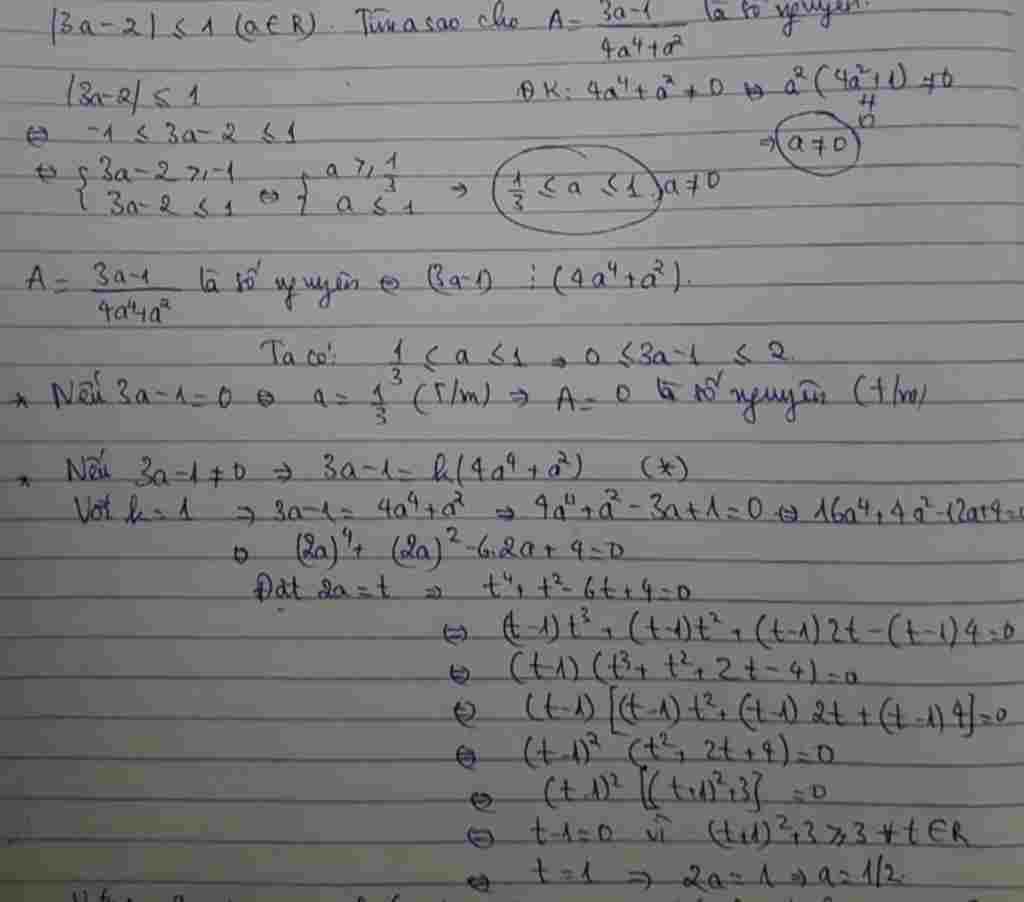 |3a-2| ≤ 1 (a∈R). Tìm a sao cho A = (3a-1)/(4a⁴+a²) là số nguyên.
|3a-2| ≤ 1 ĐK: 4a⁴+a² ≠ 0 ⇔ a²(4a²+1) ≠ 0
⇔ -1 ≤ 3a-2 ≤ 1 ⇒ a ≠ 0
⇔ { 3a-2 ≥ -1 ⇔ { a ≥ 1/3
{ 3a-2 ≤ 1 { a ≤ 1 ⇒ 1/3 ≤ a ≤ 1, a ≠ 0
A = (3a-1)/(4a⁴+a²) là số nguyên ⇔ (3a-1) ⋮ (4a⁴+a²).
Ta có: 1/3 ≤ a ≤ 1 ⇒ 0 ≤ 3a-1 ≤ 2.
* Nếu 3a-1=0 ⇔ a = 1/3 (T/m) ⇒ A = 0 là số nguyên (t/m)
* Nếu 3a-1≠0 ⇒ 3a-1 = k(4a⁴+a²) (*)
Với k=1 ⇒ 3a-1 = 4a⁴+a² ⇒ 4a⁴+a²-3a+1=0 ⇔ 16a⁴+4a²-12a+4=0
⇔ (2a)⁴+(2a)²-6.2a+4=0
Đặt 2a=t ⇒ t⁴+t²-6t+4=0
⇔ (t-1)t³+(t-1)t²+(t-1)2t-(t-1)4=0
⇔ (t-1)(t³+t²+2t-4)=0
⇔ (t-1)[(t-1)t²+(t-1)2t+(t-1)4]=0
⇔ (t-1)²(t²+2t+4)=0
⇔ (t-1)²[(t+1)²+3]=0
⇔ t-1=0 vì (t+1)²+3≥3 ∀t∈R
⇔ t=1 ⇒ 2a=1 ⇒ a=1/2.